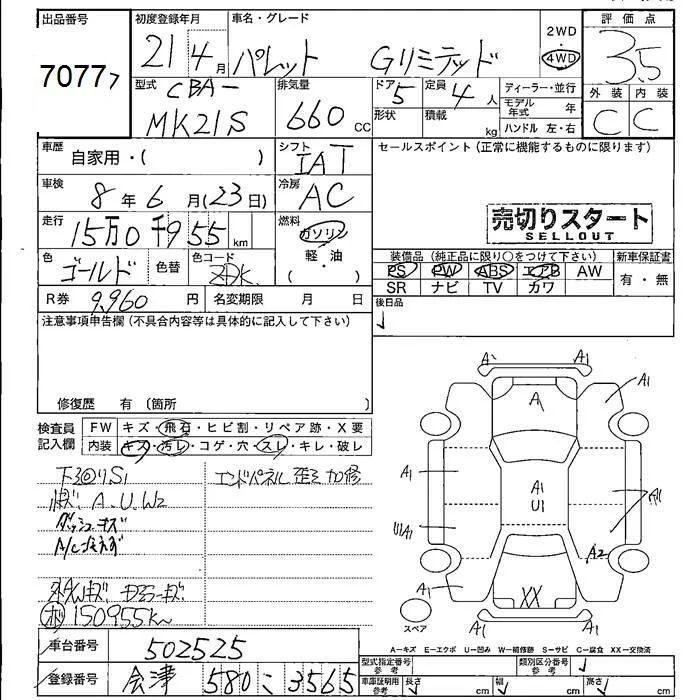 出品番号 初度登録年月 車名・グレード 2WD 評価点
70777 21 4月 パレット Gリミテッド 4WD 3.5
型式 排気量 ドア 定員 ディーラー・並行 外装 内装
CBA- 5 4人 モデル年式 年 C C
MK21S 660cc 形状 積載 kg ハンドル 左・右
車歴 自家用・( ) シフト IAT セールスポイント(正常に機能するものに限ります)
車検 8年6月(23日) 冷房 AC
売切りスタート
SELLOUT
走行 15万0千955km 燃料 ガソリン
軽・油
( )
色 ゴールド 色替 色コード ZDK 装備品(純正品に限り○をつけて下さい) 新車保証書
PS PW ABS エアB AW 有・無
SR ナビ TV カワ
R券 9,960円 名変期限 月 日 後日品
注意事項申告欄(不具合内容等は具体的に記入して下さい)
修復歴 有 (箇所 )
検査員記入欄 FW キズ・飛石・ヒビ割・リペア跡・X要
内装 キズ・汚レ・コゲ・穴・スレ・キレ・破レ
下回りS1 エンドパネル歪 加修
A.U.W2
ダッシュキズ
㊍150955km
A A1
A A1
A1 A1 A1
U1
U1A1 A2
A1 A1
XX
スペア A1 A1
A−キズ E−エクボ U−凹み W−補修跡 S−サビ C−腐食 XX−交換済
車台番号 502525
型式指定番号 参考 類別区分番号 参考
登録番号 会津 580 こ 3565
車庫証明用 参考 長さ cm 幅 cm 高さ cm